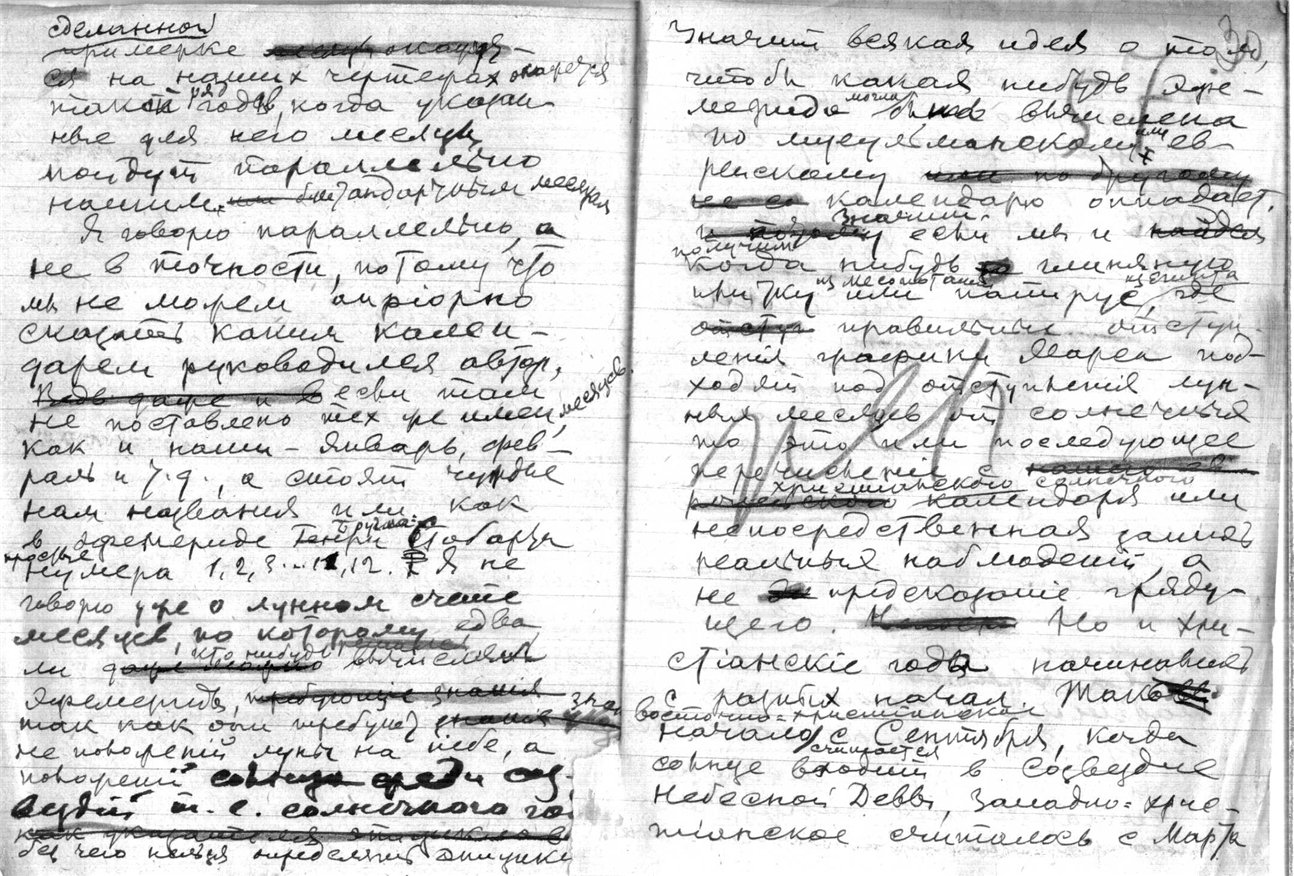 сделанной
примерке
ся на наших чертежах окажется
такой ряд годов, когда указан-
ные для него месяцы,
пойдут параллельно
нашим календарным месяцам
Я говорю параллельно, а
не в точности, потому что
мы не можем апріорно
сказать каким кален-
дарем руководился автор,
если там
не поставлено тех же имен месяцев,
как и наши – январь, фев-
раль и т.д., а стоят чуждые
нам названия или как
в эфемериде Генри Бругша-Стобарта
простые
нумера 1, 2, 3...11, 12. Я не
говорю уже о лунном счете
месяцев, по которому едва
ли кто нибудь вычислял
эфемериды,
так как они требуют
не положеній луны на небе, а
положеній солнца среди соз-
вездій т.е. солнечного го
без чего нельзя определять
Значит всякая идея о том, 30
чтобы какая нибудь эфе-
мерида могла быть вычислена
по мусульманскому или ев-
рейскому
календарю отпадает.
Значит если мы и
получим
когда нибудь глиняную
из Месопотаміи из Египта
плитку или папирус, где
правильныя отступ-
ленія графики Марса под-
ходят под отступленія лун-
ных месяцев от солнечных
то это или последующее
перечисленіе с
христианского солнечного
календаря или
непосредственная запись
реальных наблюденій, а
не предсказаніе гряду-
щего. Но и хри-
стіанскіе годы начинались
с разных начал. Так
восточно-христианское
начало с Сентября, когда
считается
солнце входит в Созвездие
Небесной Девы, Западно-хрис-
тіянское считалось с Марта